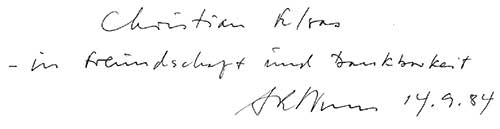 Christian Klaas
– in Freundschaft und Dankbarkeit
14.9.84